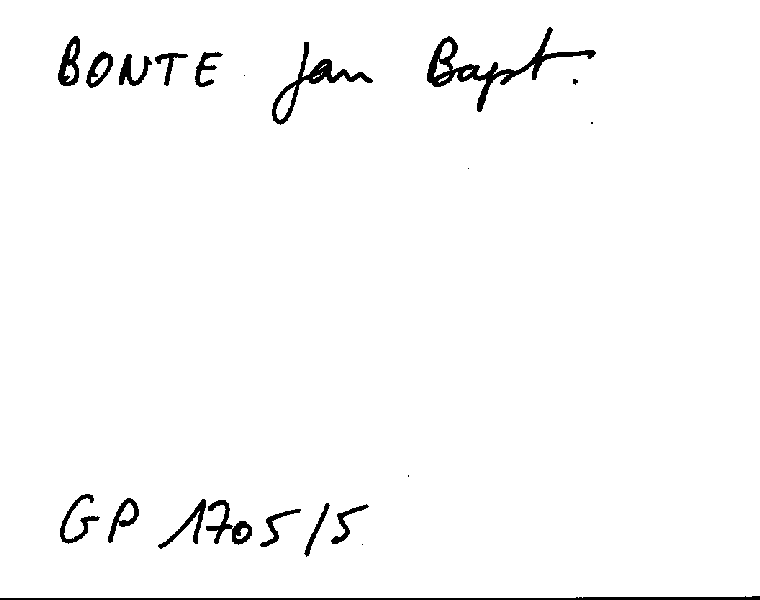 BONTE Jan Bapt.
GP 1705/5